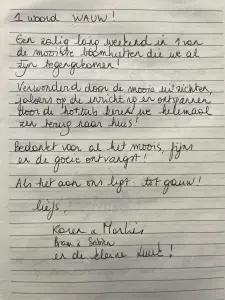 1 woord WAUW!
Een zalig lang weekend in 1 van
de mooiste boomhutten die we al
zijn tegengekomen!
Verwonderd door de mooie uitzichten,
jaloers op de inrichting en ontspannen
door de hottub keren we helemaal
zen terug naar huis!
Bedankt voor al het moois, fijns
en de goeie ontvangst!
Als het aan ons ligt tot gauw!
liefs,
Karen & Marlies
Bram &
en de kleine